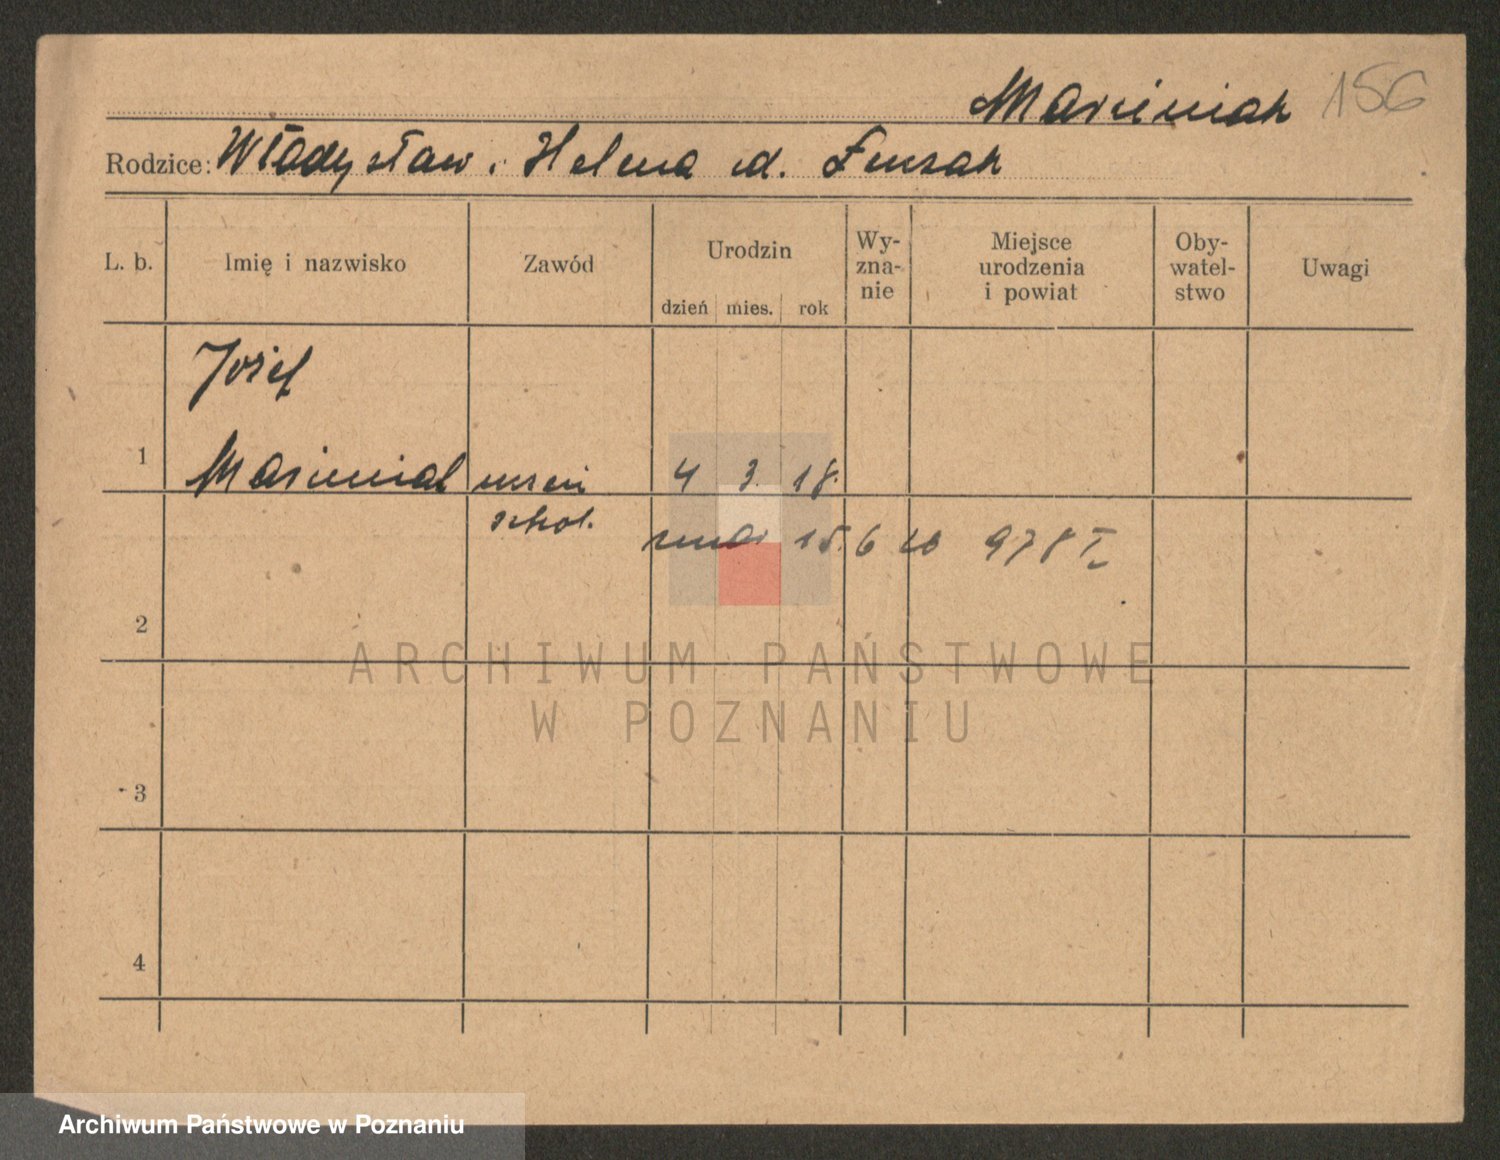 Marciniak 156
Rodzice: Władysław i Helena ur.
L. b. Imię i nazwisko Zawód Urodzin dzień mies. rok Wy-zna-nie Miejsce urodzenia i powiat Oby-watel-stwo Uwagi
Józef
1 Marciniak uczeń 4 3. 18.
szkol.
zmar 15. 6 978 I
2
3
4
ARCHIWUM PAŃSTWOWE
W POZNANIU
Archiwum Państwowe w Poznaniu